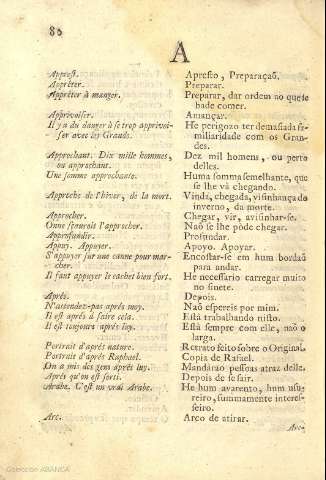 80
A
Apprest. Apresto, Preparaçaõ.
Apprêter. Preparar.
Apprêter à manger. Preparar, dar ordem ao que se
hade comer.
Apprivoiser. Amançar.
Il y a du danger à se trop apprivoi- He perigozo ter demasiada fa-
ser avec les Grands. miliaridade com os Gran-
des.
Approchant. Dix mille hommes, Dez mil homens, ou perto
ou approchant. delles.
Une somme approchante. Huma somma semelhante, que
se lhe và chegando.
Approche de l'hiver, de la mort. Vinda, chegada, visinhança do
inverno, da morte.
Approcher. Chegar, vir, avisinhar-se.
On ne sçauroit l'approcher. Naõ se lhe póde chegar.
Approfundir. Profundar.
Appuy. Appuyer. Apoyo. Apoyar.
S'appuyer sur une canne pour mar- Encostar-se em hum bordaõ
cher. para andar.
Il faut appuyer le cachet bien fort. He necessario carregar muito
no sinete.
Aprés. Depois.
N'attendez-pas aprés moy. Naõ espereis por mim.
Il est aprés à faire cela. Está trabalhando nisto.
Il est toujours aprés luy. Está sempre com elle, naõ o
larga.
Portrait d'aprés nature. Retrato feito sobre o Original.
Portrait d'aprés Raphael. Copia de Rafael.
On a mis des gens aprés luy. Mandàraõ pessoas atraz delle.
Aprés qu'on est sorti. Depois de se sair.
Arabe. C'est un vrai Arabe. He hum avarento, hum usu-
reiro, summamente interes-
seiro.
Arc. Arco de atirar.
Arc-
Colección ABANCA